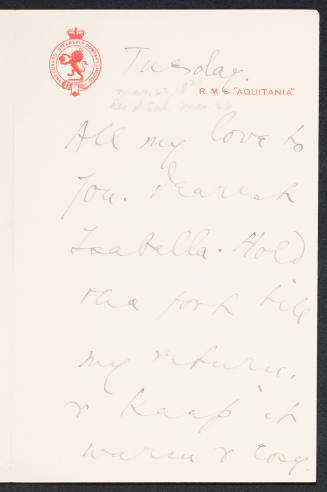 THE CUNARD STEAMSHIP COMPANY LIMITED
Tuesday.
R.M.S. "AQUITANIA"
All my love to
you. Dearest
Isabella. Hold
the fort till
my return.
& keep it
warm & cosy.